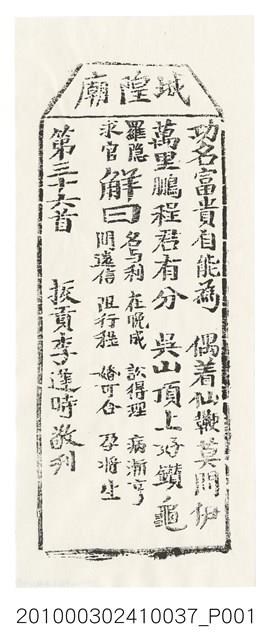 城隍廟
功名富貴自能為　偶着仙鞭莫問伊
萬里鵬程君有分　吳山頂上好鑽龜
羅隐　解曰　名与利　在晚成　訟得理　病漸亨
求官　問遠信　阻行程　婚可合　孕將生
第三十六首　拔貢李逢時敬刋
201000302410037_P001